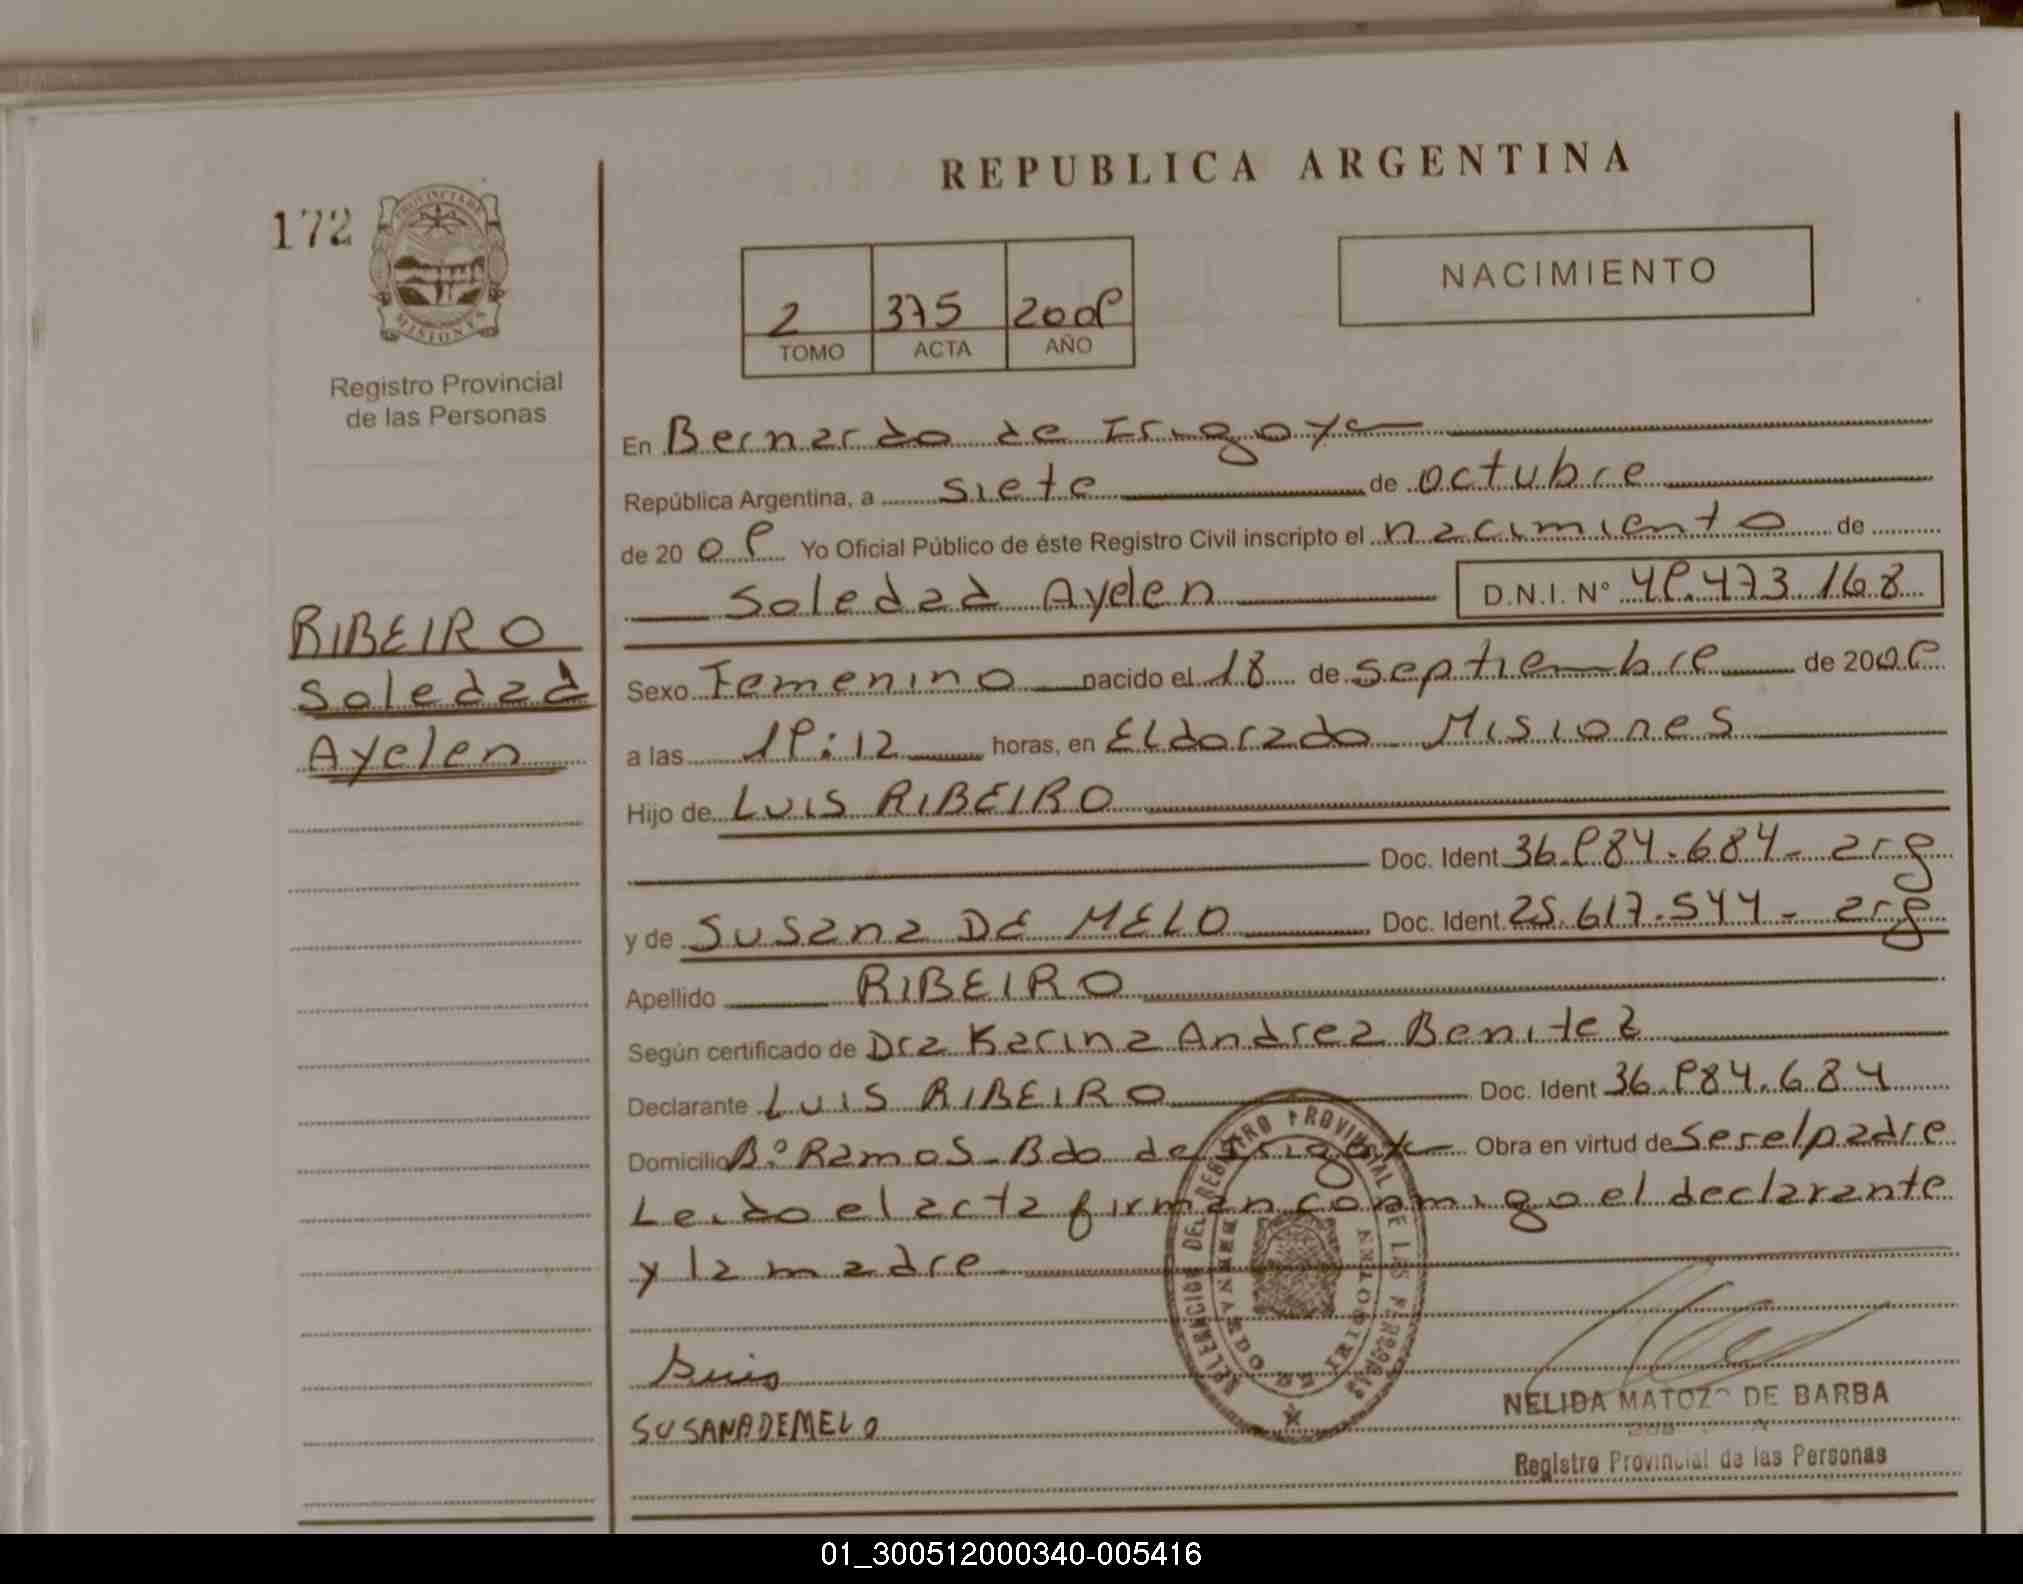 REPUBLICA ARGENTINA
172
PROVINCIA DE MISIONES
NACIMIENTO
2 375 2009
TOMO ACTA AÑO
Registro Provincial
de las Personas
En Bernardo de Irigoye
República Argentina, a siete de octubre
de 2009 Yo Oficial Público de éste Registro Civil inscripto el nacimiento de
Soledad Ayelen D.N.I. N° 49.473.168
RIBEIRO
Soledad
Ayelen
Sexo Femenino nacido el 18 de septiembre de 2009
a las 19:12 horas, en Eldorado Misiones
Hijo de LUIS RIBEIRO
Doc. Ident 36.984.684- arg
y de Susana DE MELO Doc. Ident. 25.617.544- arg
Apellido RIBEIRO
Según certificado de Dra Karina Andrea Benitez
Declarante LUIS RIBEIRO Doc. Ident 36.984.684
Domicilio B.° Ramos - Bdo de Irigoye Obra en virtud de ser el padre
Leido el acta firman conmigo el declarante
y la madre
DELEGACION DEL REGISTRO PROVINCIAL DE LAS PERSONAS
BERNARDO DE IRIGOYEN MISIONES
Luis
SUSANADEMELO
NELIDA MATOZO DE BARBA
Registro Provincial de las Personas
01_300512000340-005416